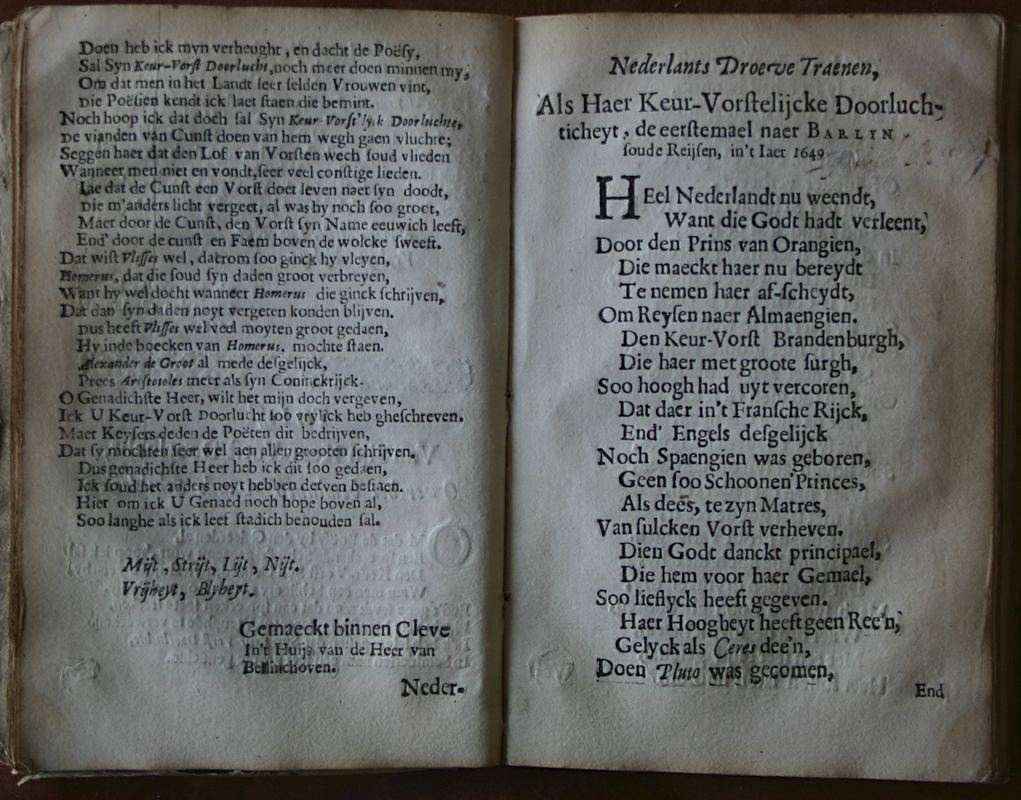 Doen heb ick myn verheught, en dacht de Poësy,
Sal Syn Keur-Vorst Doorlucht, noch meer doen minnen my,
Om dat men in het Landt seer selden Vrouwen vint,
Die Poësien kendt ick laet staen die bemint.
Noch hoop ick dat doch sal Syn Keur-Vorst'lyck Doorluchte,
De vianden van Cunst doen van hem wegh gaen vluchte;
Seggen haer dat den Lof van Vorsten wech soud vlieden
Wanneer men niet en vondt, seer veel constige lieden.
Lae dat de Cunst een Vorst doet leven naer syn doodt,
Die m'anders licht vergeet, al was hy noch soo groot,
Maer door de Cunst, den Vorst syn Name eeuwich leeft,
End' door de cunst en Faem boven de wolcke sweeft.
Dat wist Vlisses wel, daerom soo ginck hy vleyen,
Homerus, dat die soud syn daden groot verbreyen,
Want hy wel docht wanneer Homerus die ginck schrijven,
Dat dan syn daden noyt vergeten konden blijven.
Dus heeft Vlisses wel veel moyten groot gedaen,
Hy inde boecken van Homerus, mochte staen.
Alexander de Groot al mede desgelijck,
Prees Aristoteles meer als syn Coninckrijck.
O Genadichste Heer, wilt het mijn doch vergeven,
Ick U Keur-Vorst Doorlucht soo vrylick heb gheschreven.
Maer Keysers deden de Poëten dit bedrijven,
Dat sy mochten seer wel aen allen grooten schrijven.
Dus genadichste Heer heb ick dit soo gedaen,
Ick soud het anders noyt hebben derven bestaen.
Hier om ick U Genaed noch hope boven al,
Soo langhe als ick leef stadich behouden sal.
Mijt, Strijt, Lijt, Nijt.
Vrijheyt, Blyheyt.
Gemaeckt binnen Cleve
In't Huijs van de Heer van
Bellinchoven.
Neder-
Nederlants Droeve Traenen,
Als Haer Keur-Vorstelijcke Doorluch-
ticheyt, de eerstemael naer BARLYN
soude Reijsen, in't Iaer 1649
HEel Nederlandt nu weendt,
Want die Godt hadt verleent,
Door den Prins van Orangien,
Die maeckt haer nu bereydt
Te nemen haer af-scheydt,
Om Reysen naer Almaengien.
Den Keur-Vorst Brandenburgh,
Die haer met groote surgh,
Soo hoogh had uyt vercoren,
Dat daer in't Fransche Rijck,
End' Engels desgelijck
Noch Spaengien was geboren,
Geen soo Schoonen Princes,
Als dees, te zyn Matres,
Van sulcken Vorst verheven.
Dien Godt danckt principael,
Die hem voor haer Gemael,
Soo lieflyck heeft gegeven.
Haer Hoogheyt heeft geen Ree'n,
Gelyck als Ceres dee'n,
Doen Pluto was gecomen,
End